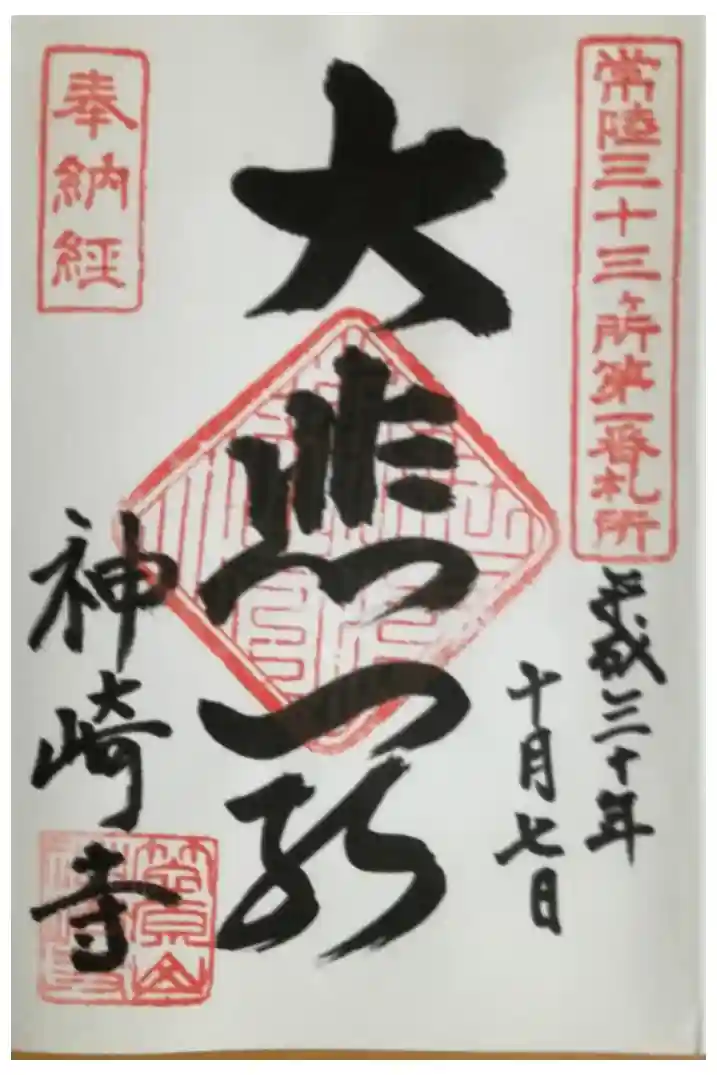 常陸三十三ヶ所第一番札所
平成三十年
十月七日
大悲
奉納經
神崎寺